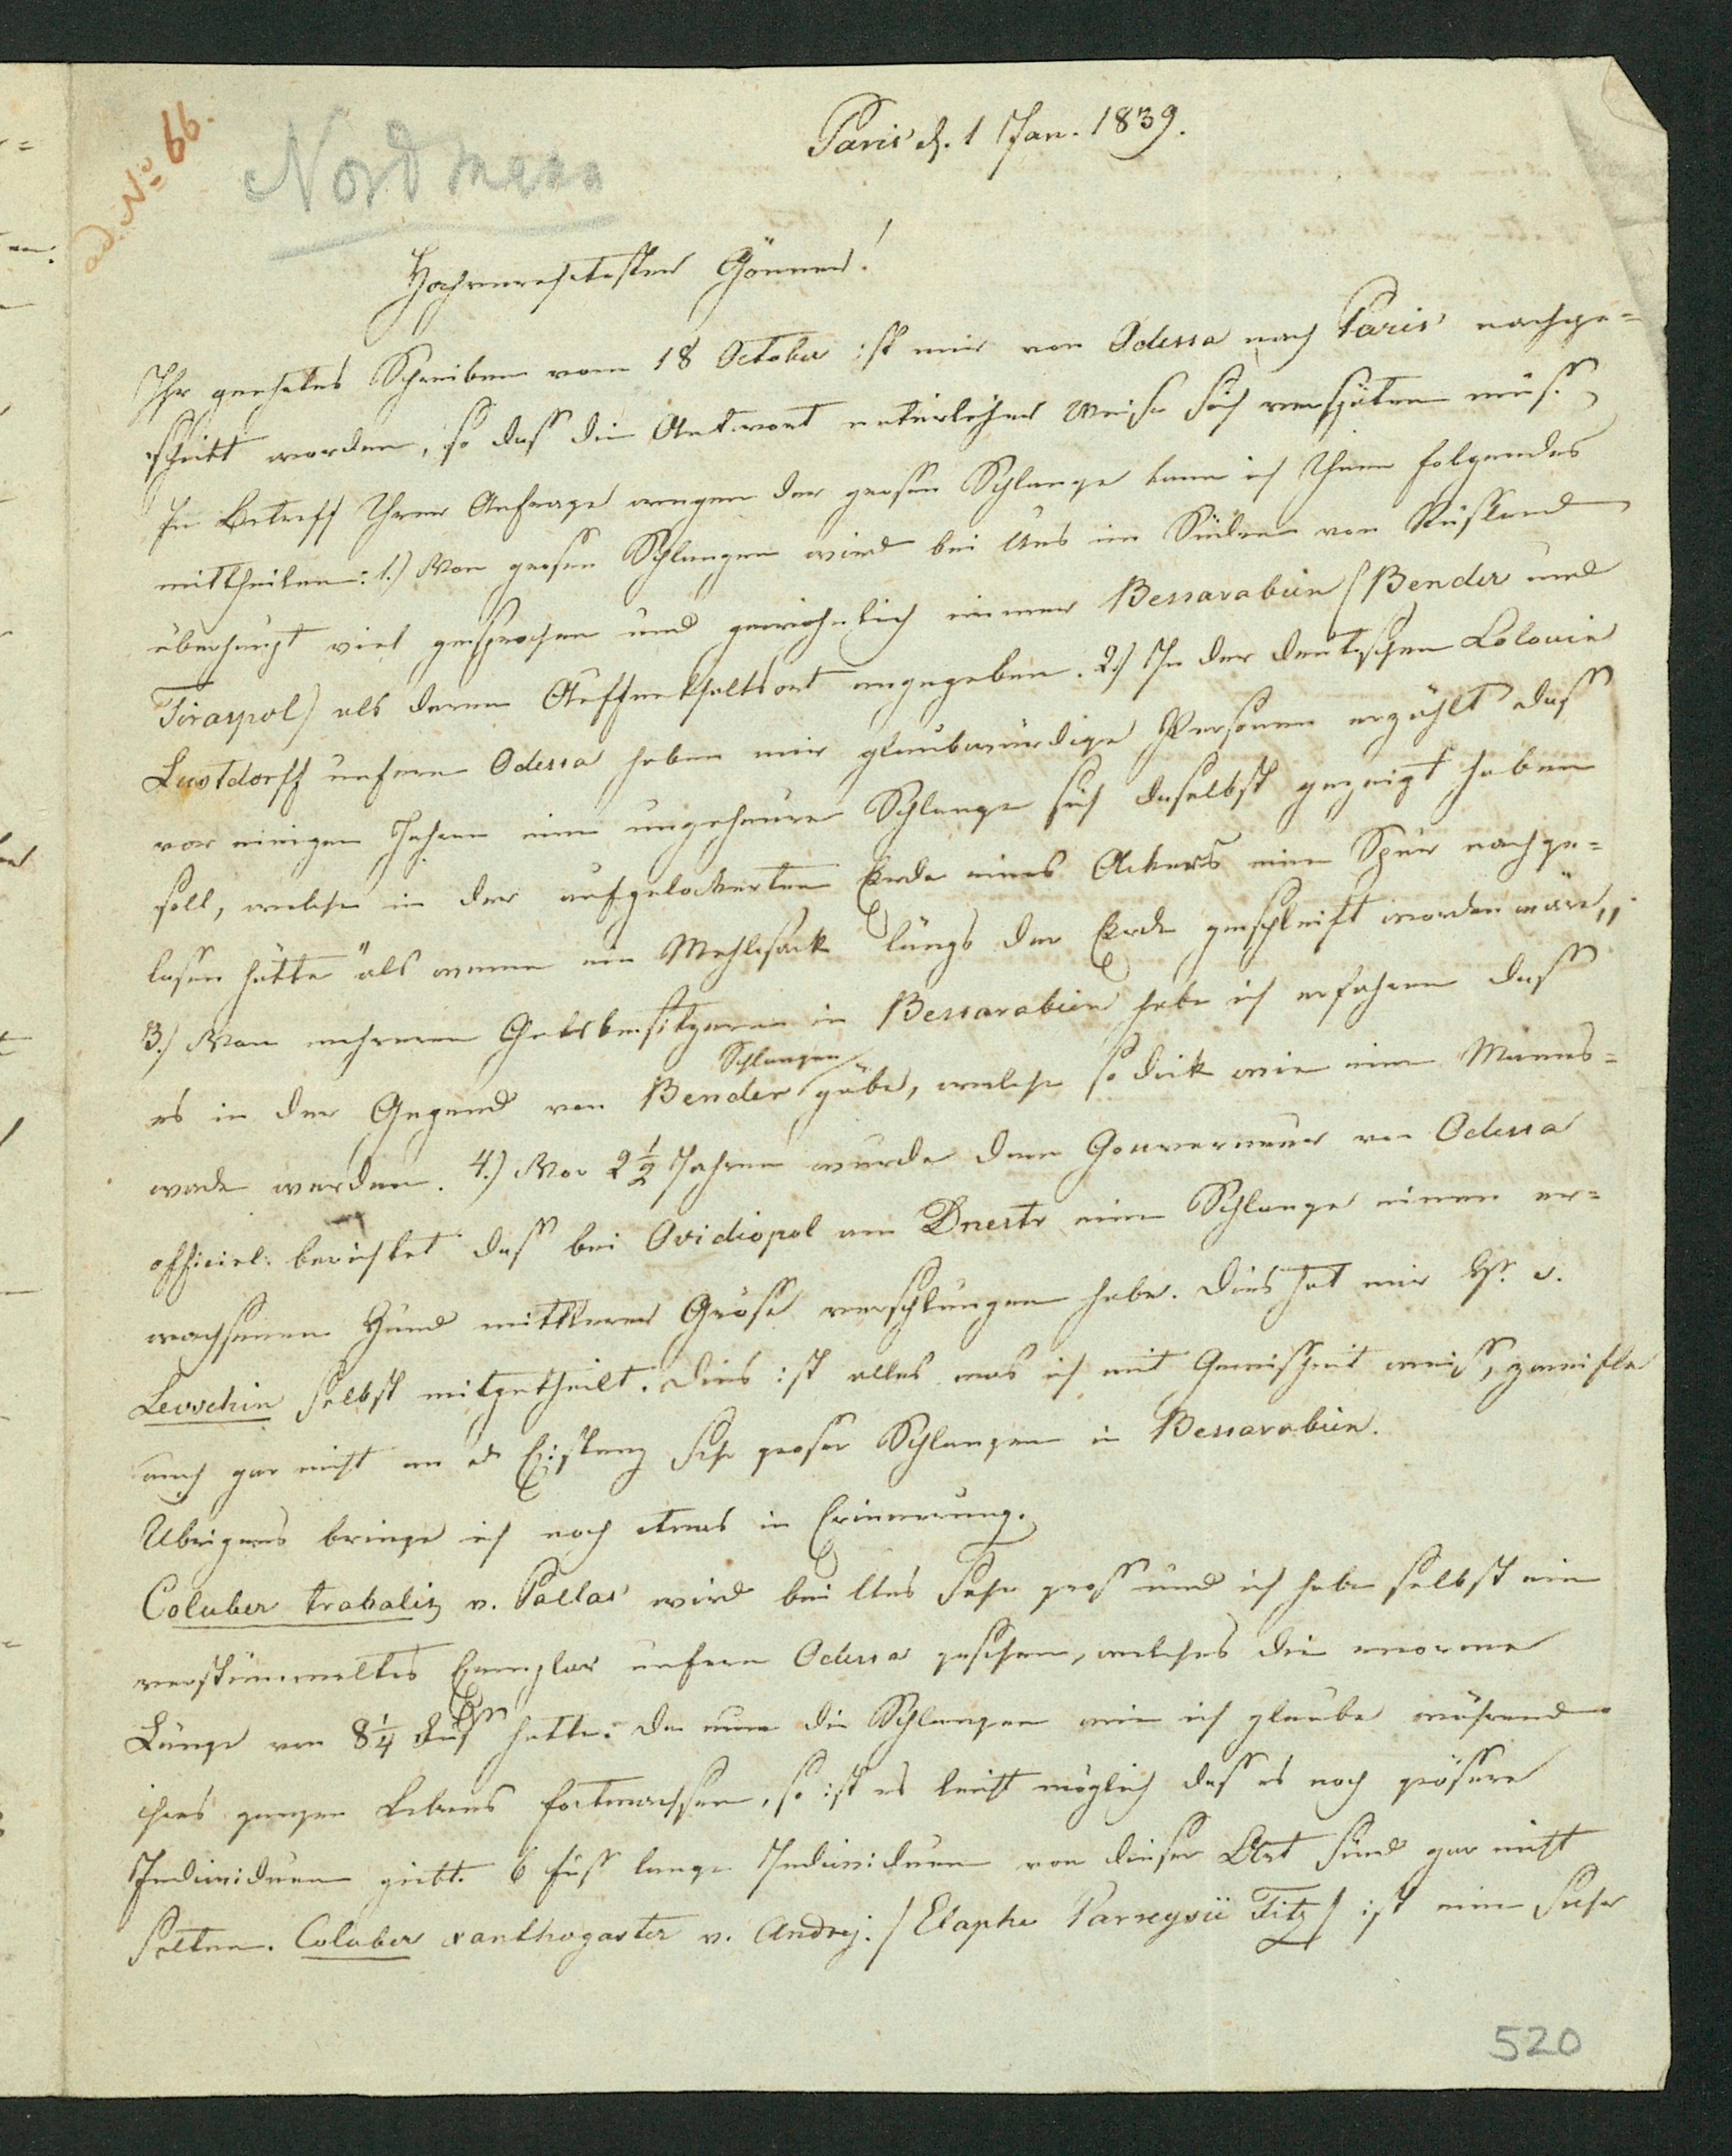 ad. No 66.
Nordmann
Paris d. 1 Jan. 1839.
Hochverehrtester Gönner!
Ihr geehrtes Schreiben vom 18 October ist mir von Odessa nach Paris nachge=
schickt worden, so dass die Antwort natürlicher Weise sich verspäten muss.
In Betreff Ihrer Anfrage wegen der grosen Schlange kann ich Ihnen folgendes
mittheilen: 1.) Von grosen Schlangen wird bei Uns im Süden von Russland
überhaupt viel gesprochen und gewöhnlich immer Bessarabien (Bender und
Tiraspol) als deren Auffenthaltsort angegeben. 2.) In der deutschen Colonie
Lustdorff unfern Odessa haben mir glaubwürdige Personen erzählt dass
vor einigen Jahren eine ungeheure Schlange sich daselbst gezeigt haben
soll, welche in der aufgelockerten Erde eines Ackers eine Spur nachge=
lassen hätte "als wenn ein Mehlsack längs der Erde geschleift worden wäre„.
3.) Von mehreren Gutsbesitzern in Bessarabien habe ich erfahren dass
es in der Gegend von Bender Schlangen gäbe, welche so dick wie eine Manns=
wade werden. 4.) Vor 2 1/2 Jahren wurde dem Gouverneur von Odessa
officiel: berichtet dass bei Ovidiopol am Dnestr eine Schlange einen er=
wachsenen Hund mittlerer Gröse verschlungen habe. Dies hat mir Hr. v.
Levschin selbst mitgetheilt. Dies ist alles was ich mit Gewisheit weiss, zweifle
auch gar nicht an d Existenz sehr groser Schlangen in Bessarabien.
Übrigens bringe ich noch etwas in Erinnerung.
Coluber trabalis v. Pallas wird bei Uns sehr gross und ich habe selbst ein
verstümmeltes Exemplar unfern Odessa gesehen, welches die enorme
Länge von 8 1/4 Fuss hatte. Da nun die Schlangen wie ich glaube während
ihres ganzen Lebens fortwachsen, so ist es leicht möglich dass es noch grössere
Individuen giebt. 6 Fuss lange Individuen von dieser Art sind gar nicht
selten. Coluber xanthogaster v. Andrej. (Elaphe Parreyssii Fitz) ist eine sehr
520